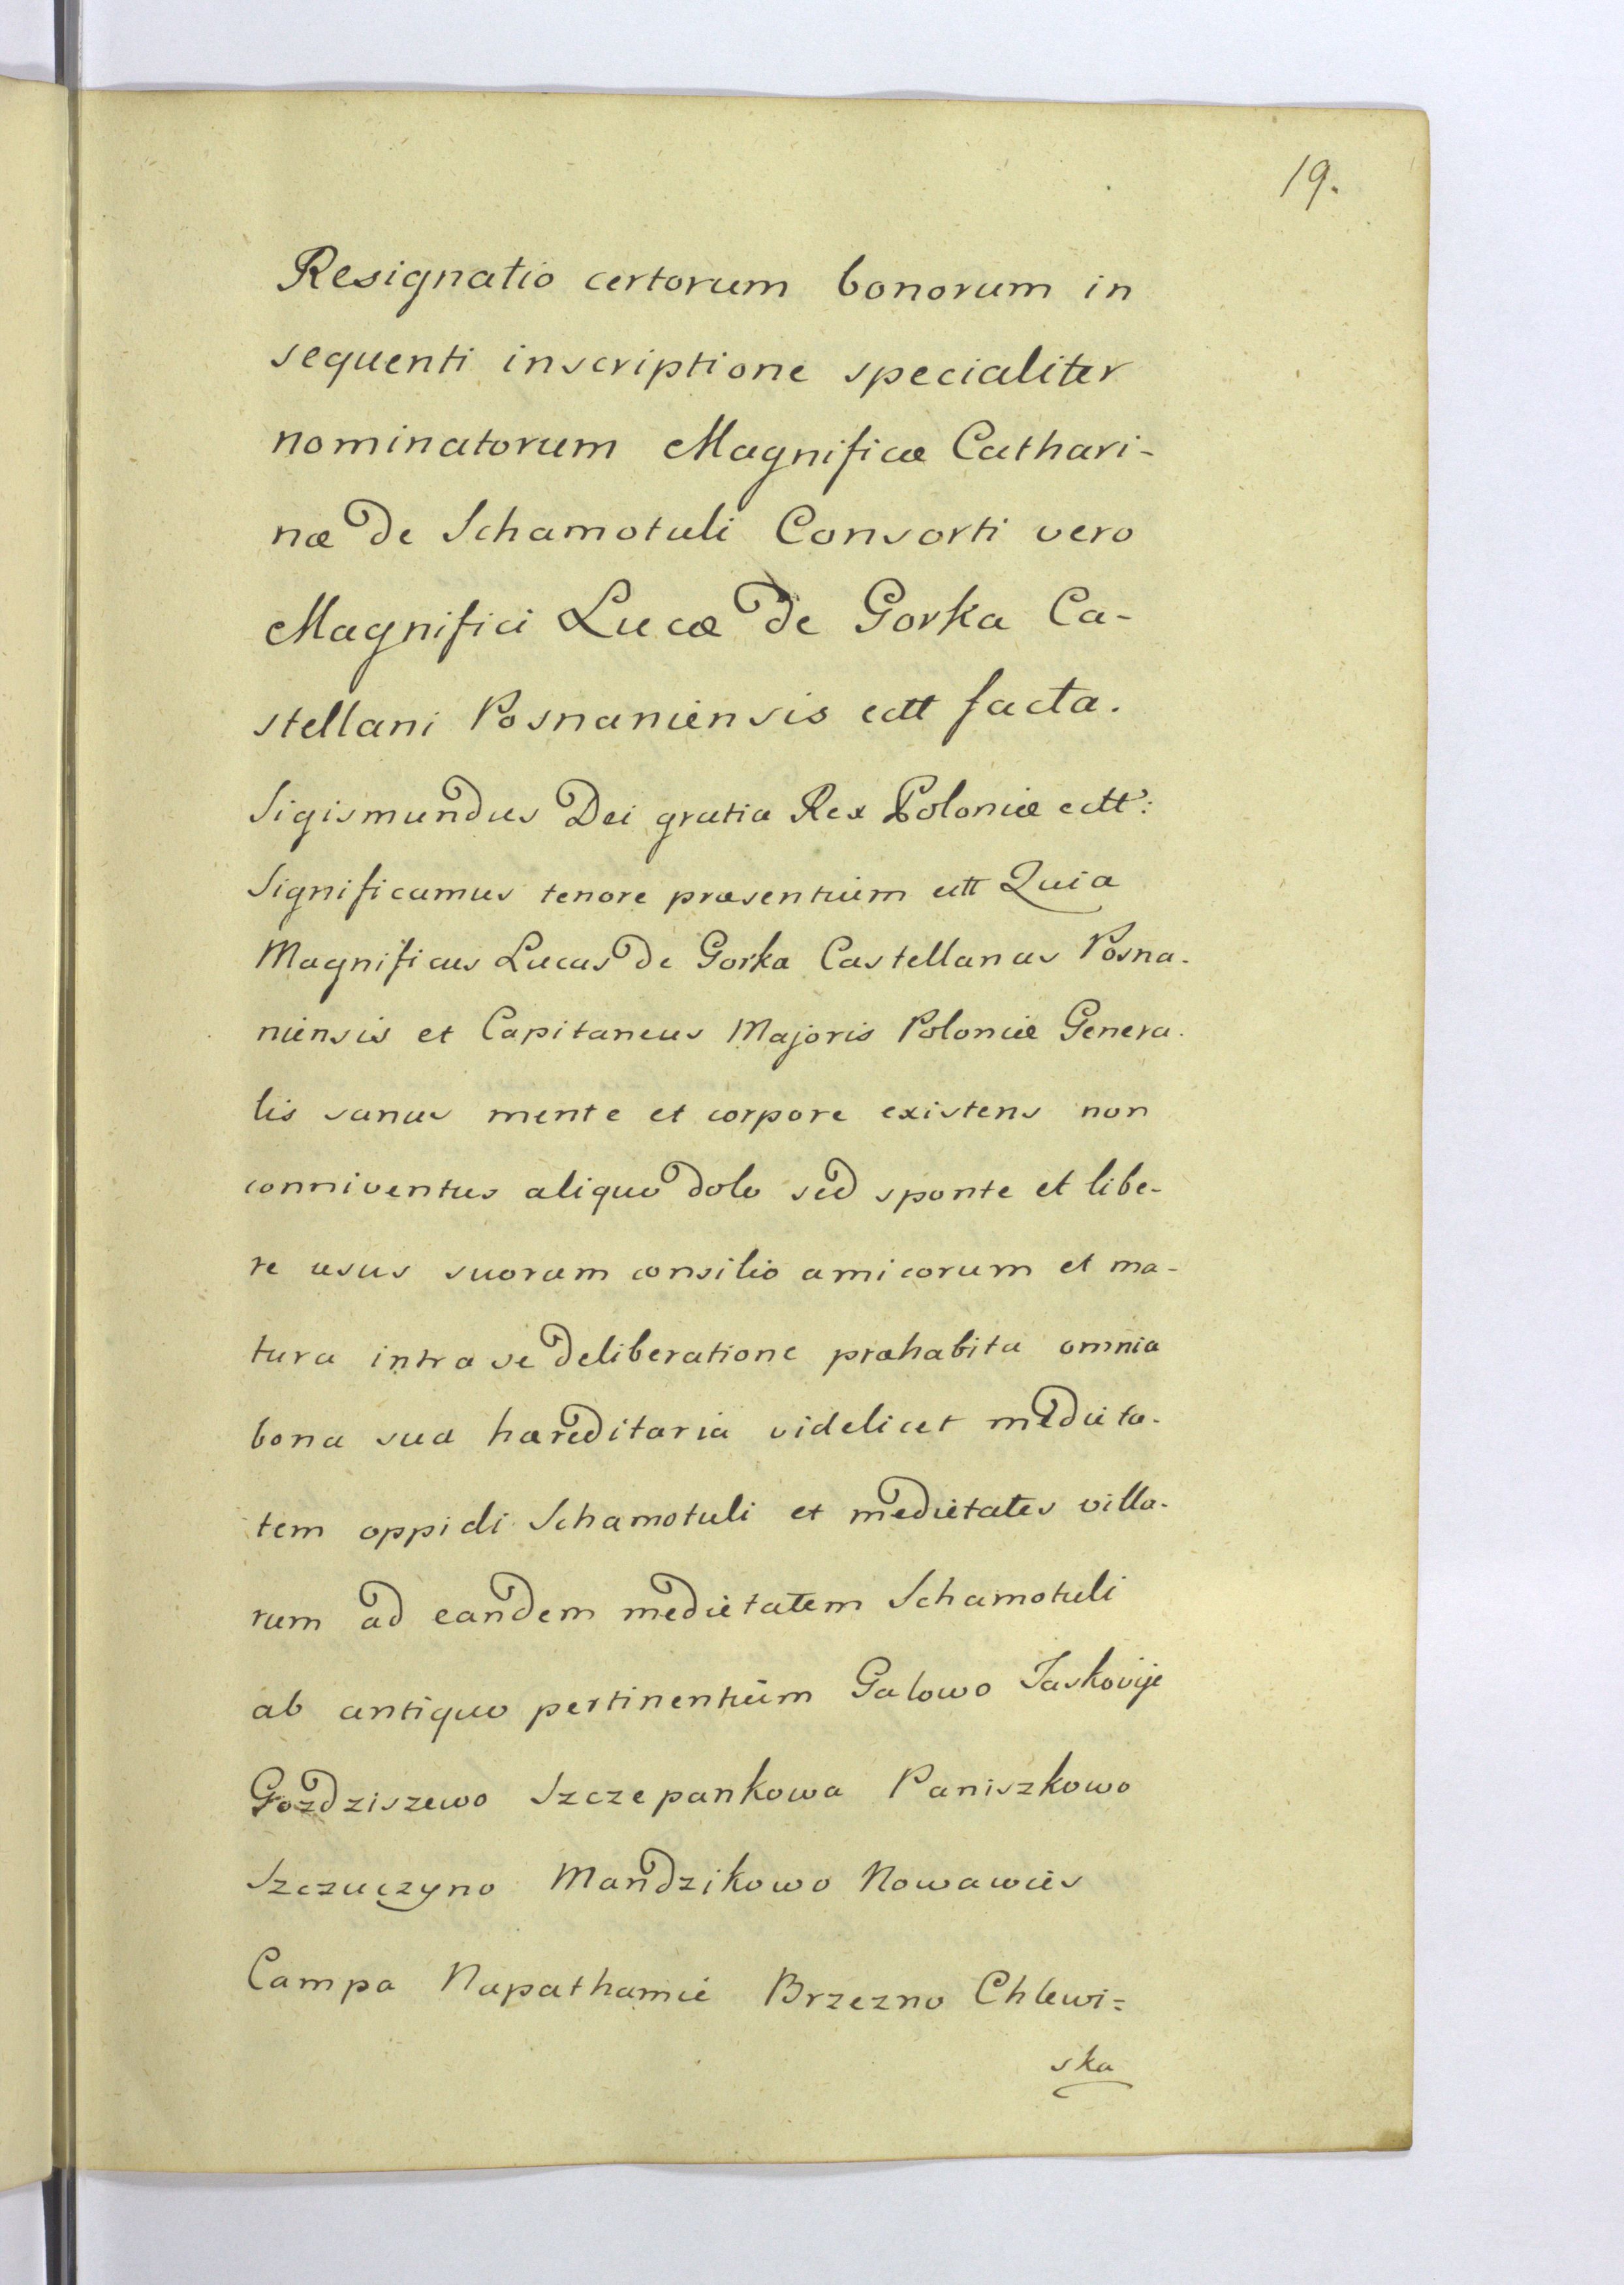 19.
Resignatio certorum bonorum in
sequenti inscriptione specialiter
nominatorum Magnificæ Cathari-
næ de Schamotuli Consorti vero
Magnifici Lucæ de Gorka Ca-
stellani Posnaniensis ectt facta.
Sigismundus Dei gratia Rex Poloniæ ectt:
Significamus tenore præsentium ectt Quia
Magnificus Lucas de Gorka Castellanus Posna-
niensis et Capitaneus Majoris Poloniæ Genera-
lis sanus mente et corpore existens non
conniventus aliquo dolo sed sponte et libe-
re usus suorum consilio amicorum et ma-
tura intra se deliberatione præhabita omnia
bona sua hæreditaria videlicet medieta-
tem oppidi Schamotuli et medietates villa-
rum ad eandem medietatem Schamotuli
ab antiquo pertinentium Galowo Jaskovije
Gozdziszewo Szczepankowa Paniszkowo
Szczuczyno Mandzikowo Nowawies
Campa Napathamie Brzezno Chlewi=
ska